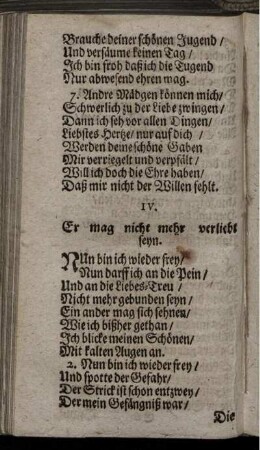 Brauche deiner schönen Jugend /
Und versäume keinen Tag /
Ich bin froh daß ich die Tugend
Nur abwesend ehren mag.
7. Andre Mädgen können mich /
Schwerlich zu der Liebe zwingen /
Dann ich seh vor allen Dingen /
Liebstes Hertze / nur auf dich /
Werden deine schöne Gaben
Mir verriegelt und verpfält /
Will ich doch die Ehre haben /
Daß mir nicht der Willen fehlt.
IV.
Er mag nicht mehr verliebt
seyn.
NUn bin ich wieder frey /
Nun darff ich an die Pein /
Und an die Liebes-Treu /
Nicht mehr gebunden seyn /
Ein ander mag sich sehnen /
Wie ich bißher gethan /
Ich blicke meinen Schönen /
Mit kalten Augen an.
2. Nun bin ich wieder frey /
Und spotte der Gefahr /
Der Strick ist schon entzwey /
Der mein Gefängniß war /
Die